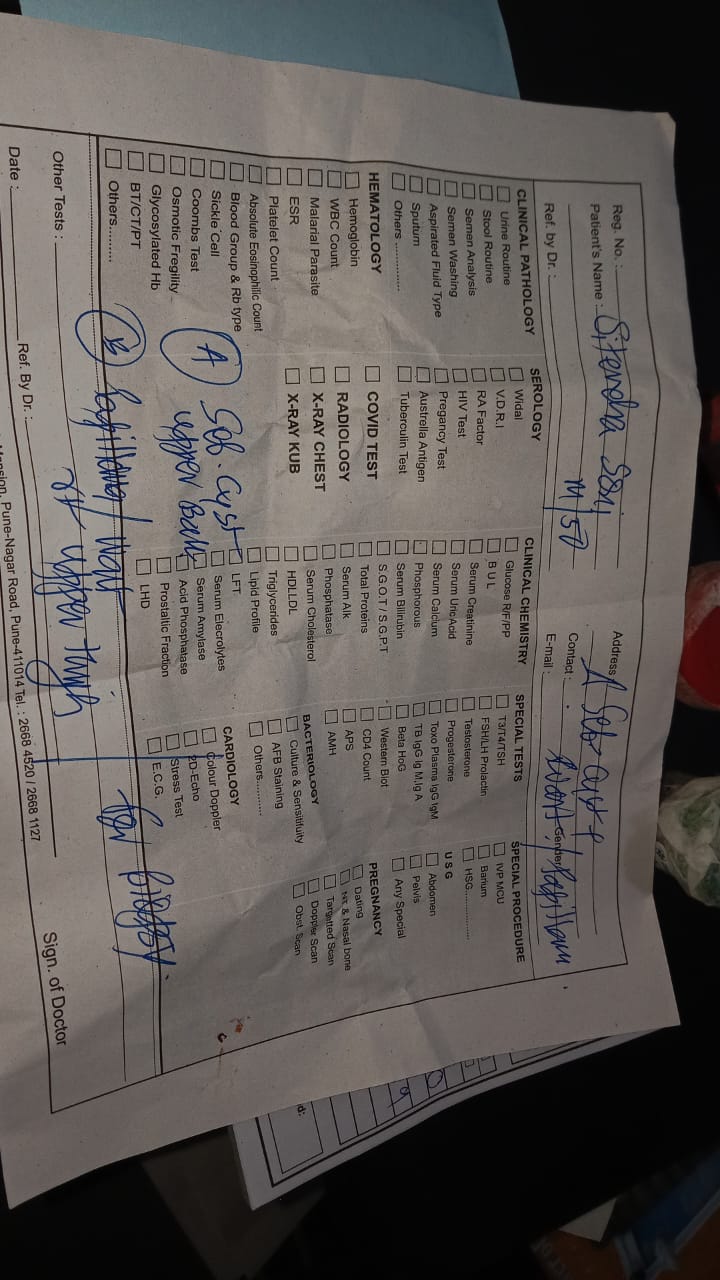 Reg. No. :
Patient's Name : Sitendra Soni M/50
Ref. by Dr. :
Address :
Contact :
E-mail : Gender
CLINICAL PATHOLOGY
Urine Routine
Stool Routine
Semen Analysis
Semen Washing
Aspirated Fluid Type
Sputum
Others.............
HEMATOLOGY
Hemoglobin
WBC Count
Malarial Parasite
ESR
Platelet Count
Absolute Eosinophilic Count
Blood Group & Rb type
Sickle Cell
Coombs Test
Osmotic Fregility
Glycosylated Hb
BT/CT/PT
Others.........
SEROLOGY
Widal
V.D.R.I
RA Factor
HIV Test
Pregancy Test
Australia Antigen
Tuberculin Test
COVID TEST
RADIOLOGY
X-RAY CHEST
X-RAY KUB
CLINICAL CHEMISTRY
Glucose R/F/PP
B U L
Serum Creatinine
Serum Uric Acid
Serum Calcum
Phosphorous
Serum Bilirubin
S.G.O.T / S.G.P.T
Total Proteins
Serum Alk
Phosphatase
Serum Cholesterol
HDLLDL
Triglycerides
Lipid Profile
LFT
Serum Elecrolytes
Serum Amylase
Acid Phosphatase
Prostaltic Fraction
LHD
SPECIAL TESTS
T3/T4/TSH
FSH/LH Prolactin
Testosterone
Progesterone
Toxo Plasma IgG IgM
TB IgG Ig M,Ig A
Beta HoG
Western Blot
CD4 Count
APS
AMH
BACTERIOLOGY
Culture & Sensitifuity
AFB Staining
Others...........
CARDIOLOGY
Colour Doppler
2D-Echo
Stress Test
E.C.G.
SPECIAL PROCEDURE
IVP MCU
Barium
HSG..................
U S G
Abdomen
Pelvis
Any Special
PREGNANCY
Dating
NT & Nasal bone
Targetted Scan
Doppler Scan
Obst. Scan
A Seb. Cyst
upper Back
B Papilloma/Wart
rt upper thigh
for biopsy.
Other Tests :
Date : Ref. By Dr. : Sign. of Doctor
Pune-Nagar Road, Pune-411014 Tel. : 2668 4520 / 2668 1127